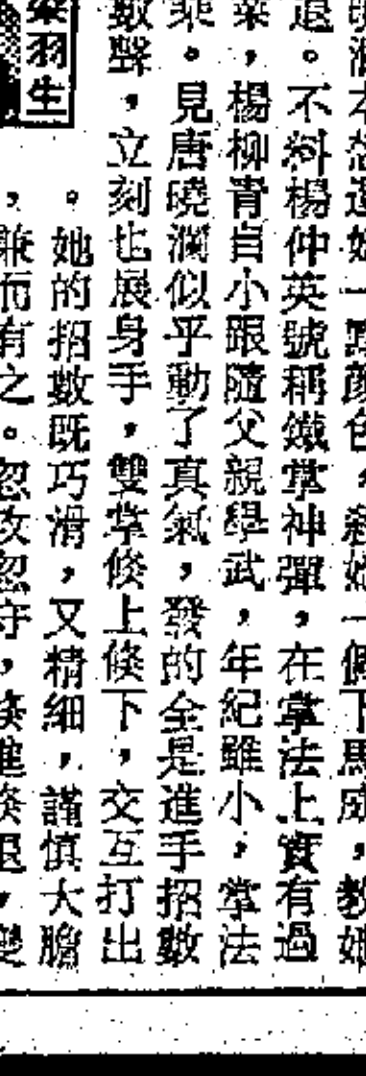 曉瀾本想還她一點顏色，給她一個下馬威，教她
退。不料楊仲英號稱鐵掌神彈，在掌法上實有過
業，楊柳青自小跟隨父親學武，年紀雖小，掌法
乘。見唐曉瀾似乎動了真氣，發的全是進手招數
數聲，立刻也展身手，雙掌倏上倏下，交互打出
梁羽生
。她的招數既巧滑，又精細，謹慎大膽
，兼而有之。忽攻忽守，倏進倏退，變